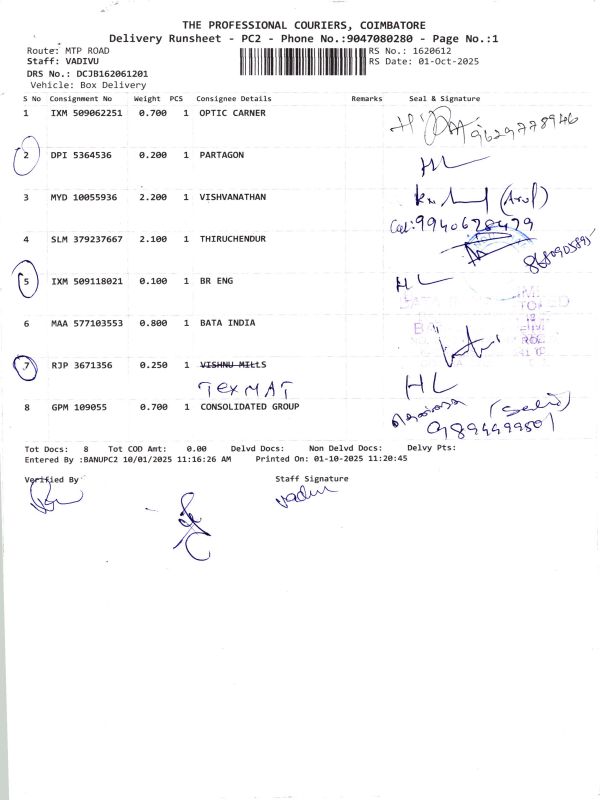 THE PROFESSIONAL COURIERS, COIMBATORE
Delivery Runsheet - PC2 - Phone No.:9047080280 - Page No.:1
Route: MTP ROAD RS No.: 1620612
Staff: VADIVU RS Date: 01-Oct-2025
DRS No.: DCJB162061201
Vehicle: Box Delivery
S No Consignment No Weight PCS Consignee Details Remarks Seal & Signature
1 IXM 509062251 0.700 1 OPTIC CARNER 9629778946
2 DPI 5364536 0.200 1 PARTAGON HL
3 MYD 10055936 2.200 1 VISHVANATHAN
4 SLM 379237667 2.100 1 THIRUCHENDUR
5 IXM 509118021 0.100 1 BR ENG HL
6 MAA 577103553 0.800 1 BATA INDIA
7 RJP 3671356 0.250 1 VISHNU MILLS
TEXMAT HL
8 GPM 109055 0.700 1 CONSOLIDATED GROUP
Tot Docs: 8 Tot COD Amt: 0.00 Delvd Docs: Non Delvd Docs: Delvy Pts:
Entered By :BANUPC2 10/01/2025 11:16:26 AM Printed On: 01-10-2025 11:20:45
Verified By Staff Signature